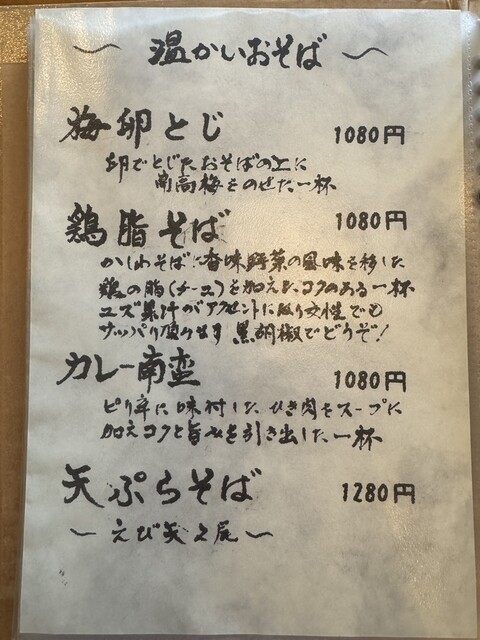 ～ 温かいおそば ～
梅卵とじ 1080円
卵でとじたおそばの上に
南高梅をのせた一杯
鶏脂そば 1080円
かしわそばに香味野菜の風味を移した
鶏の脂(チーユ)を加えた、コクのある一杯
ユズ果汁がアクセントになり女性でも
サッパリ頂けます 黒胡椒でどうぞ!
カレー南蛮 1080円
ピリ辛に味付した、ひき肉をスープに
加えコクと旨みを引き出した一杯
天ぷらそば 1280円
～ えび天2尾 ～